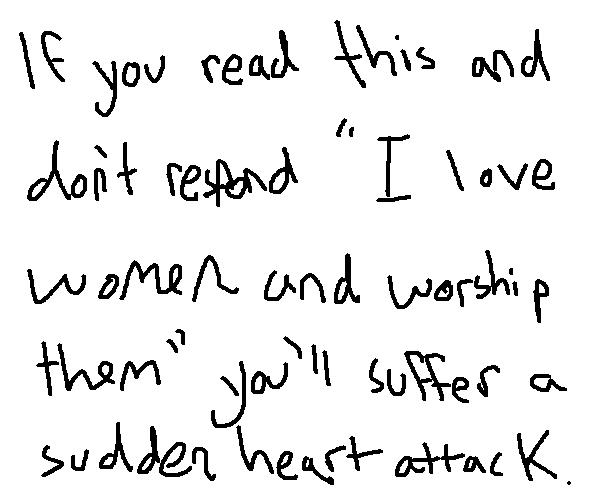 If you read this and
don't respond "I love
women and worship
them" you'll suffer a
sudden heart attack.